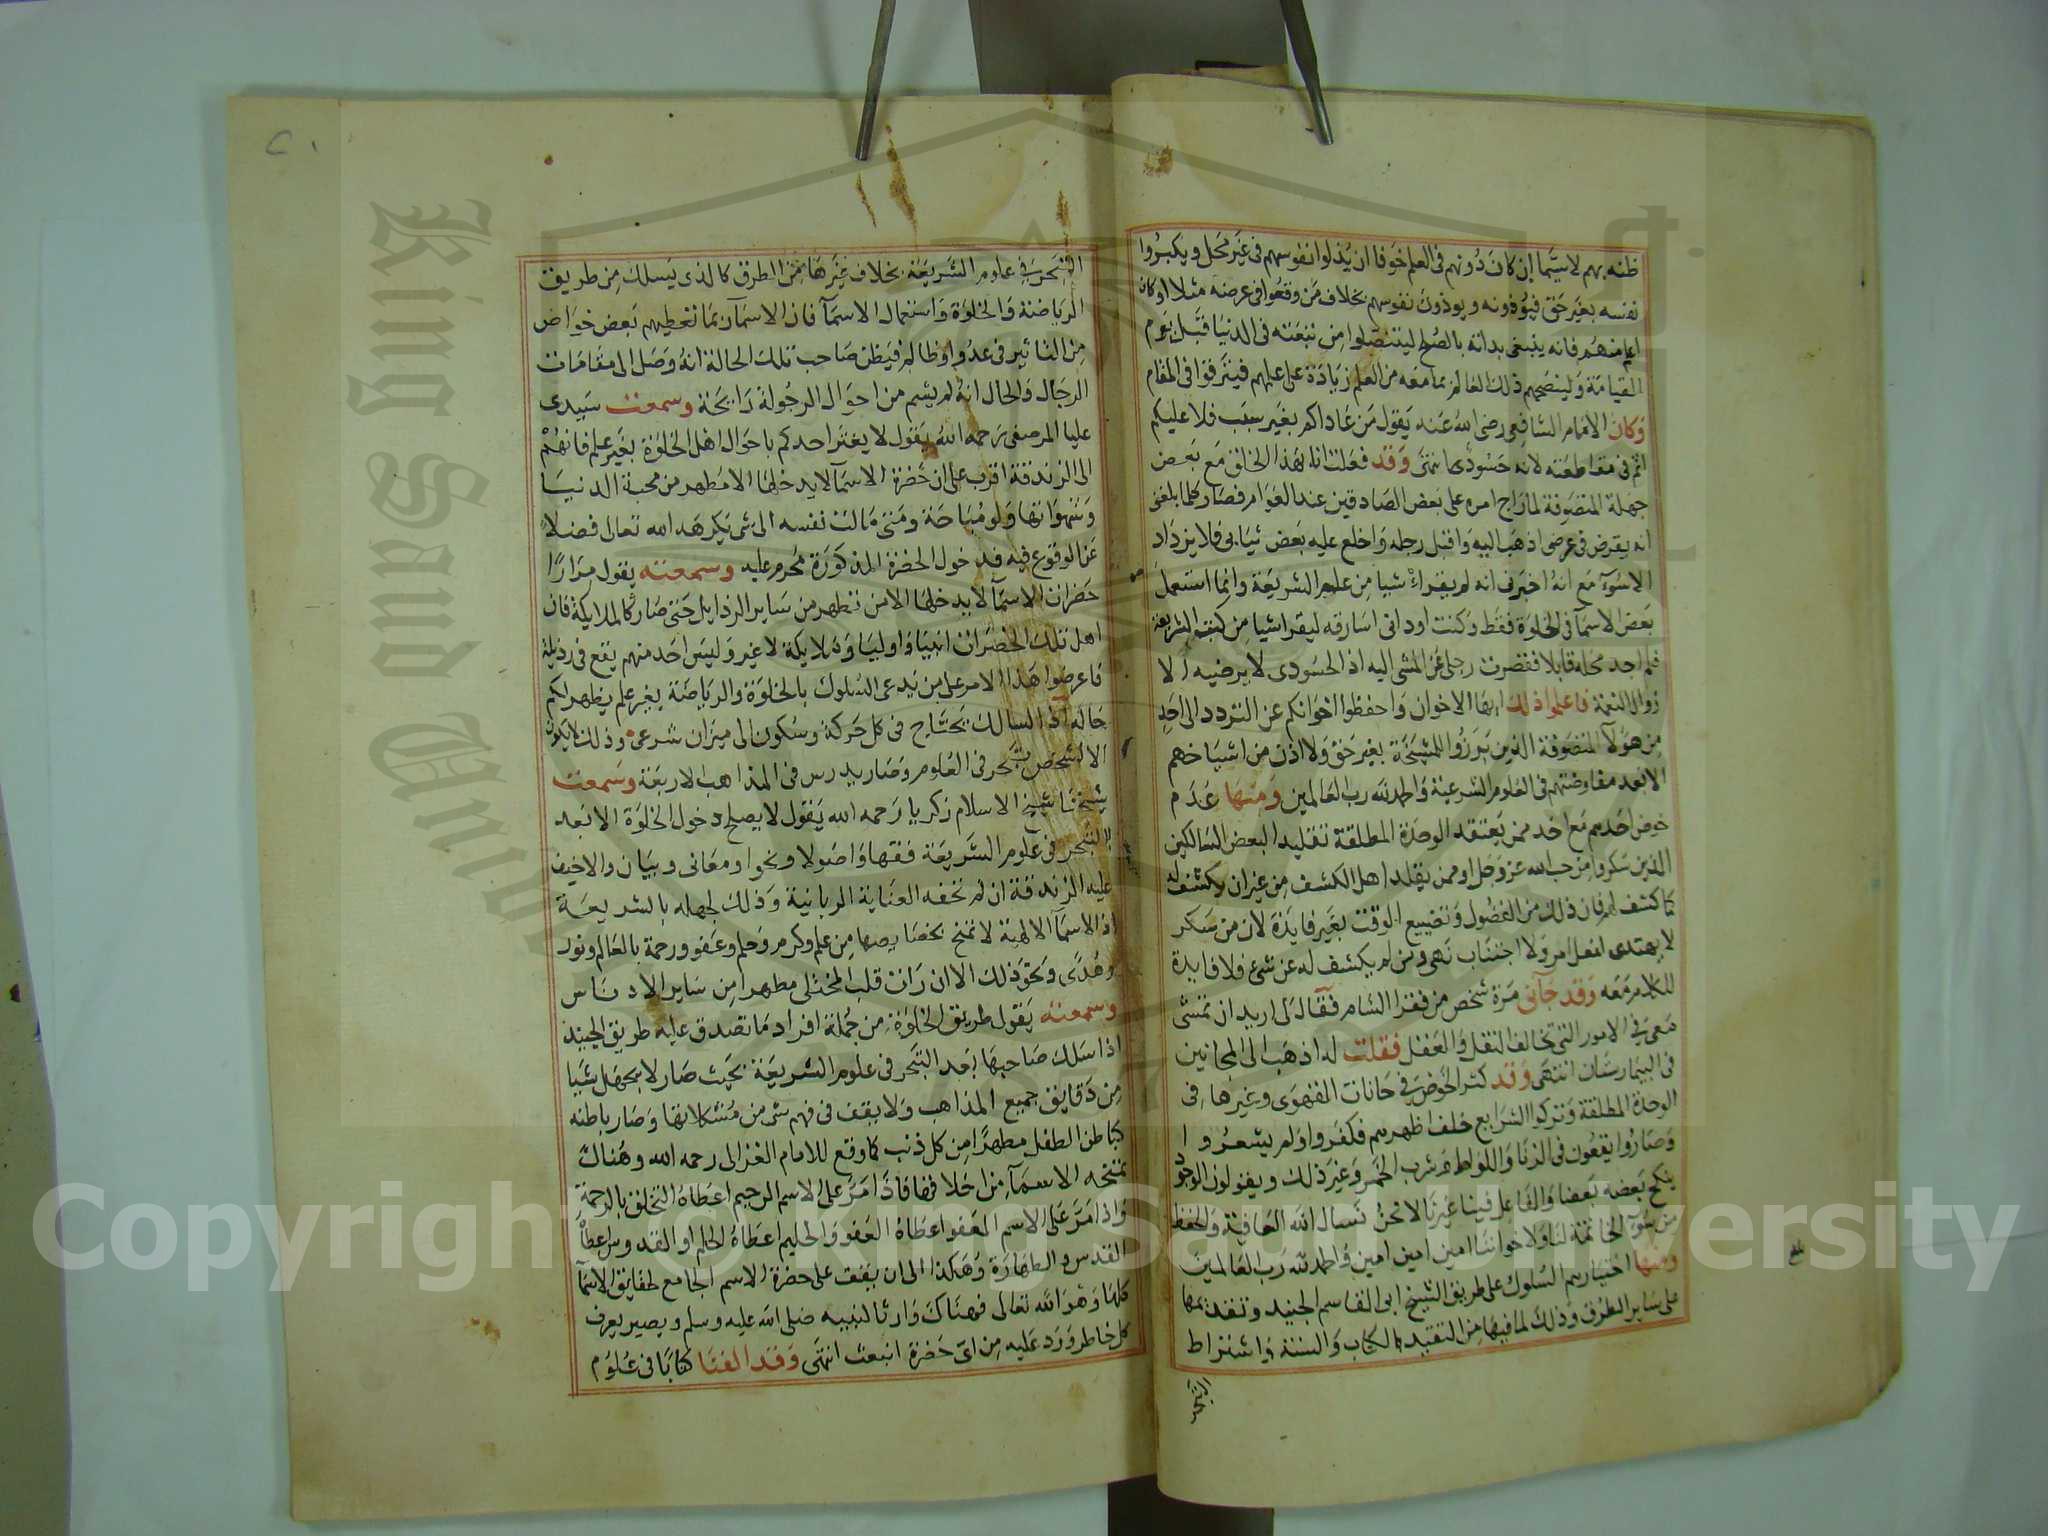 ظنه بهم لا سيما إن كان دونهم في العلم خوفا ان يذلوا نفوسهم في غير محل ويكبروا
نفسه بغير حق فيؤذونه ويوذون نفوسهم بخلاف من وقعوا في عرضه مثلا او كان
اعلم منهم فانه ينبغي بدانه بالصلح ليتنصلوا من تبعته في الدنيا قبل يوم
القيامة ولينصحهم ذلك العالم بما معه من العلم زيادة على علمهم فيترقوا في المقام
وكان الامام الشافعي رضي الله عنه يقول من عاداكم بغير سبب فلا عليكم
اثم في مقاطعته لانه حسود وقد فعلت انا بهذا الخلق مع بعض
جهلة المتصوفة لما راج امره على بعض الصادقين عند العوام فصار كلما بلغني
انه يقرض في عرضي اذهب اليه واقبل رجله واخلع عليه بعض ثيابي فلا يزداد
الا سوء مع انه اخبرني انه لم يقرأ شيا من علم الشريعة وانما استعمل
بعض الاسما في الخلوة فقط وكنت اود اني اسارقه ليقرا شيا من كتب الشريعة
فلم اجد محله قابلا فقصرت رجلي عن المشي اليه اذ الحسود لا يرضيه الا
زوال النعمة فاعلموا ذلك ايها الاخوان واحفظوا اخوانكم عن التردد الى احد
من هولآ المتصوفة الذين برزوا للمشيخة بغير حق ولا اذن من اشياخهم
الا بعد مفاوضتهم في العلوم الشرعية والحمد لله رب العالمين ومنها عدم
خوض احدهم مع احد ممن يعتقد الوحدة المطلقة تقليدا لبعض السالكين
الذين سكروا من حب الله عز وجل او ممن يقلد اهل الكشف من غير ان يكشف له
كما كشف لهم فان ذلك من الفضول وتضييع الوقت بغير فايدة لان من سكر
لا يهتدي لفعل امر ولا اجتناب نهي ومن لم يكشف له عن شئ فلا فايدة
للكلام معه وقد جآني مرة شخص من فقرا الشام فقال لي اريد ان تمشي
معي في الامور التي تخالف النقل والعقل فقلت له اذهب الى المجانين
في البيمارستان انتهى وقد كثر الخوض في حانات القهوى وغيرها في
الوحدة المطلقة وتركوا الشرايع خلف اظهرهم فكفروا ولم يشعروا
وصاروا يقعون في الزنا واللواط وشرب الخمر وغير ذلك ويقولون الوجود
ينكح بعضه بعضا والفاعل فينا غيرنا لا نحن نسال الله العافية والحفظ
من سوء الخاتمة لنا ولاخواننا امين امين امين والحمد لله رب العالمين
ومنها اختيارهم السلوك على طريق الشيخ ابي القاسم الجنيد وتقديمها
على ساير الطرق وذلك لما فيها من التقيد بالكتاب والسنة واشتراط
التبحر
بلغ
٢١
التبحر في علوم الشريعة بخلاف غيرها من الطرق كالذي يسلك من طريق
الرياضة والخلوة واستعمال الاسمآ فان الاسمآ ربما تعطيهم بعض خواص
من التاثير في عدو او ظالم فيظن صاحب تلك الحالة انه وصل الى مقامات
الرجال والحال انه لم يشم من احوال الرجولة رايحة وسمعت سيدي
عليا المرصفي رحمه الله يقول لا يغتر احدكم باحوال اهل الخلوة بغير علم فانهم
الى الزندقة اقرب على ان حضرة الاسمآ لا يدخلها الا مطهر من محبة الدنيا
وشهواتها ولو مباحة ومتى مالت نفسه الى شي يكرهه الله تعالى فضلا
عن الوقوع فيه فدخول الحضرة المذكورة محرم عليه وسمعته يقول مرارا
حضرات الاسمآ لا يدخلها الا من تطهر من ساير الرذايل حتى صار كالملايكة فان
اهل تلك الحضرات انبيا واوليا وملايكة لا غير وليس احد منهم يقع في رذيلة
فاعرضوا هذا الامر على من يدعي السلوك بالخلوة والرياضة بغير علم يظهر لكم
حاله اذ السالك يحتاج في كل حركة وسكون الى ميزان شرعي وذلك لا يكون
الا لشخص تبحر في العلوم وصار يدرس في المذاهب الاربعة وسمعت
شيخنا شيخ الاسلام زكريا رحمه الله يقول لا يصلح دخول الخلوة الا بعد
التبحر في علوم الشريعة فقها واصولا ونحوا ومعاني وبيان والا خيف
عليه الزندقة ان لم تحفه العناية الربانية وذلك لجهله بالشريعة
اذ الاسمآ الالهية لا تمنح بخصايصها من علم وكرم وحلم وعفو ورحمة بالعالم ونور
وهدى ونحو ذلك الا ان رات قلب المختلي مطهرا من ساير الادناس
وسمعته يقول طريق الخلوة من جملة افراد ما تصدق عليه طريق الجنيد
اذا سلك صاحبها بعد التبحر في علوم الشريعة بحيث صار لا يجهل شيا
من دقايق جميع المذاهب ولا يقف في فهم شي من مشكلاتها وصار باطنه
كباطن الطفل مطهرا من كل ذنب كما وقع للامام الغزالي رحمه الله وهناك
تمنحه الاسمآ من اخلاقها فاذا مر على الاسم الرحيم اعطاه التخلق بالرحمة
واذا مر على الاسم العفو اعطاه العفو والحليم اعطاه الحلم او القدوس اعطاه
القدس والطهارة وهكذا الى ان يقف على حضرة الاسم الجامع لحقايق الاسمآ
كلها وهو الله تعالى فهناك وارثا لنبيه صلى الله عليه وسلم ويصير يعرف
كل خاطر ورد عليه من اي حضرة انبعث انتهى وقد الفنا كتابا في علوم
King Saud University
Copyright © King Saud University